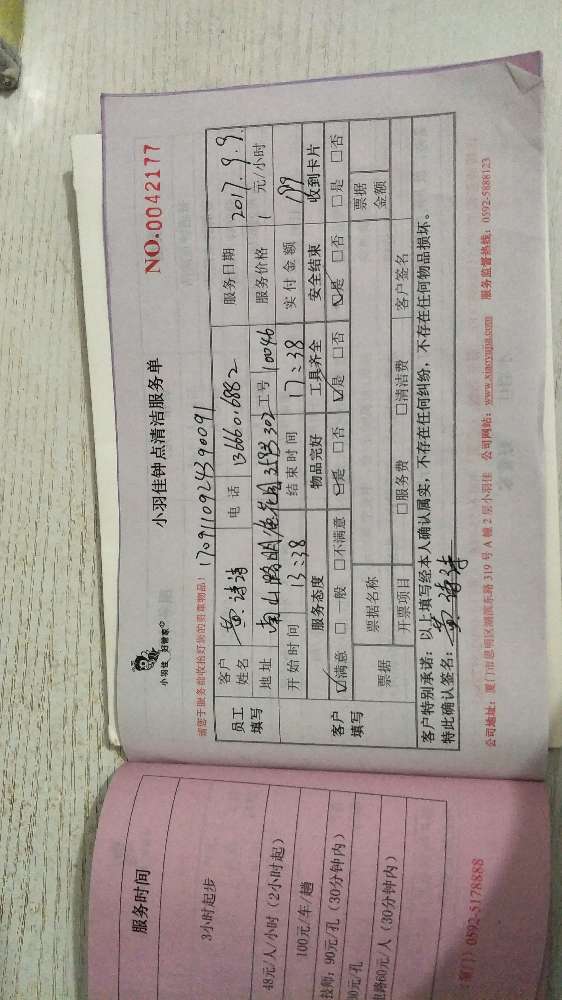 小羽佳 好管家
小羽佳钟点清洁服务单
NO.0042177
请您于服务前收拾好您的贵重物品！
1709110924390091
员工填写
客户姓名 黄诗诗 电话 13666016882 服务日期 2017.9.9
地址 302 工号 10046 服务价格 1 元/小时
开始时间 13:38 结束时间 17:38 实付金额 199
客户填写
服务态度 物品完好 工具齐全 安全结束 收到卡片
☑满意 □一般 □不满意 ☑是 □否 ☑是 □否 ☑是 □否 □是 □否
票据 票据名称 票据金额
开票项目 □服务费 □清洁费 客户签名
客户特别承诺：以上填写经本人确认属实，不存在任何纠纷，不存在任何物品损坏。
特此确认签名：黄诗诗
公司地址：厦门市思明区湖滨东路 319 号 A 幢 2 层小羽佳 公司网站：www.xiaoyujia.com 服务监督热线：0592-5888123
服务时间
3小时起步
48元/人/小时（2小时起）
100元/车/趟
技师：90元/孔（30分钟内）
0元/孔
路60元/人（30分钟内）
0592-5178888